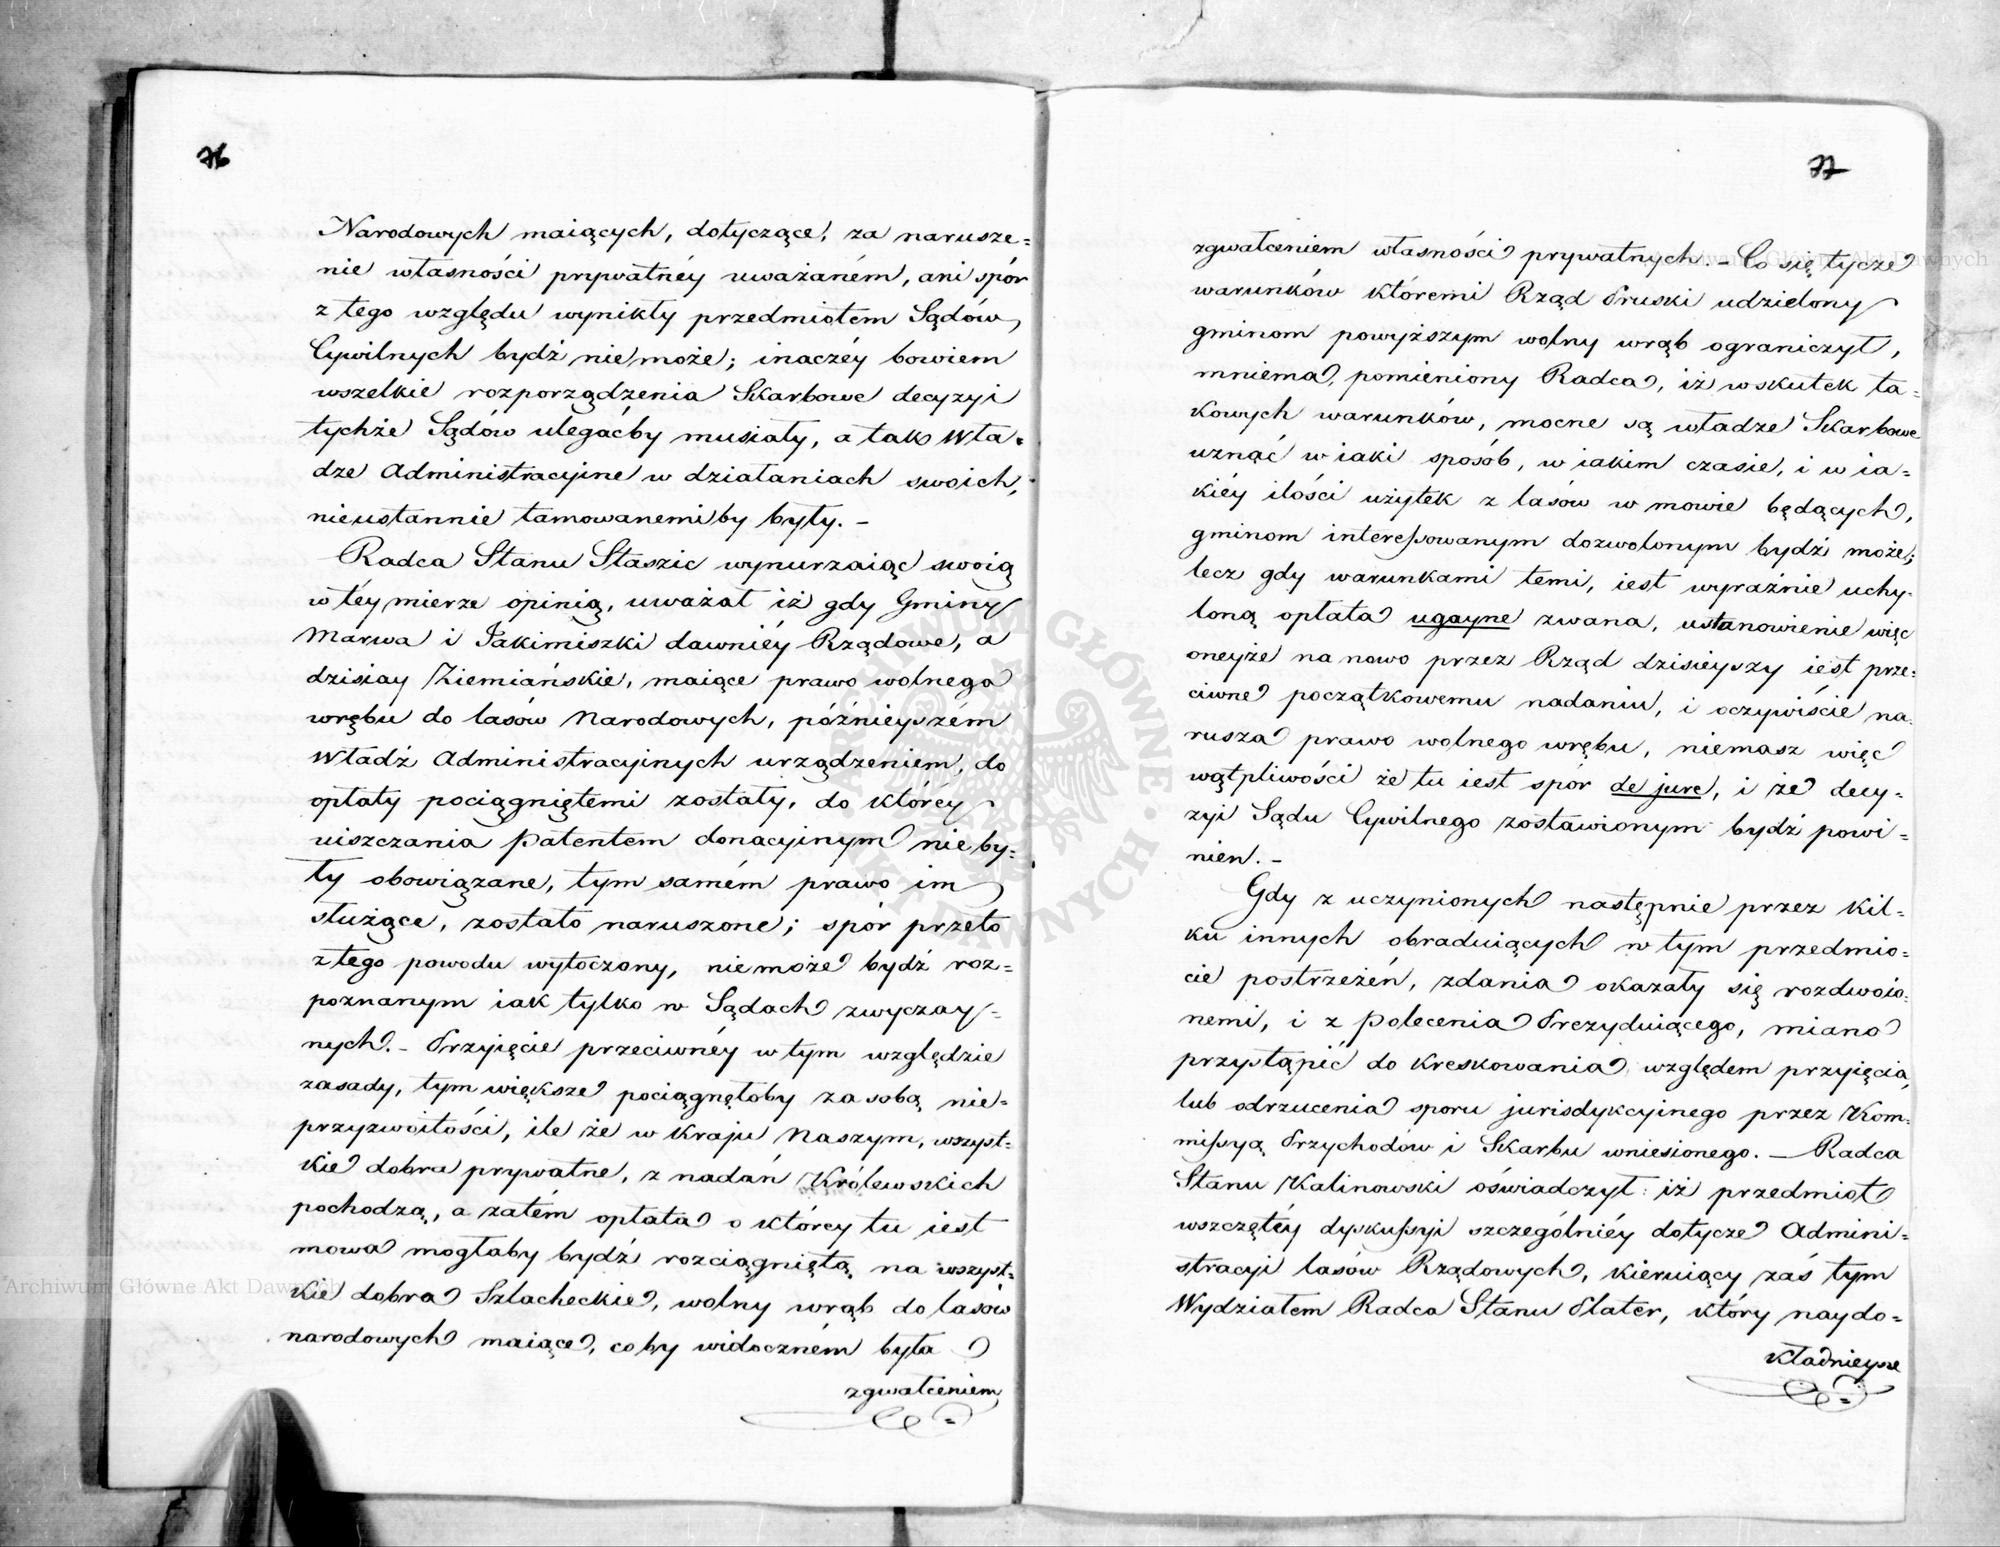 76
Narodowych maiących, dotyczące, za narusze=
nie własności prywatnéy uważaném, ani spór
z tego względu wynikły przedmiotem Sądów
Cywilnych bydź nie może; inaczéy bowiem
wszelkie rozporządzenia Skarbowe decyzyi
tychże Sądów ulegaćby musiały, a tak Wła=
dze Administracyine w działaniach swoich,
nieustannie tamowanemiby były. –
Radca Stanu Staszic wynurzaiąc swoią
w téy mierze opinią, uważał iż gdy Gminy
Marwa i Jakimiszki dawniéy Rządowe, a
dzisiay Ziemiańskie, maiące prawo wolnego
wrębu do lasów Narodowych, późnieyszém
Władz Administracyinych urządzeniem, do
opłaty pociągniętemi zostały, do któréy
uiszczania Patentem donacyinym nie by=
ły obowiązane, tym samém prawo im
służące, zostało naruszone; spór przeto
z tego powodu wytoczony, nie może bydź roz=
poznanym iak tylko w Sądach zwyczay=
nych. – Przyięcie przeciwnéy w tym względzie
zasady, tym większe pociągnęłoby za sobą nie=
przyzwoitości, ile że w Kraju Naszym, wszyst=
kie dobra prywatne, z nadań Królewskich
pochodzą, a zatém opłata o któréy tu iest
mowa mogłaby bydź rozciągniętą na wszyst=
kie dobra Szlacheckie, wolny wrąb do lasów
narodowych maiące, coby widoczném była
zgwałceniem
77
zgwałceniem własności prywatnych. – Co się tycze
warunków któremi Rząd Pruski udzielony
gminom powyższym wolny wrąb ograniczył,
mniema, pomieniony Radca, iż w skutek ta=
kowych warunków, mocne są władze Skarbowe
uznać w iaki sposób, w iakim czasie, i w ia=
kiéy ilości użytek z lasów w mowie będących,
gminom interessowanym dozwolonym bydź może;
lecz gdy warunkami temi, iest wyraźnie uchy=
loną opłata ugayne zwana, ustanowienie więc
oneyże na nowo przez Rząd dzisieyszy iest prze=
ciwne początkowemu nadaniu, i oczywiście na=
rusza prawo wolnego wrębu, niemasz więc
wątpliwości że tu iest spór de jure, i że decy=
zyi Sądu Cywilnego zostawionym bydź powi=
nien. –
Gdy z uczynionych następnie przez kil=
ku innych obraduiących w tym przedmio=
cie postrzeżeń, zdania okazały się rozdwoio=
nemi, i z Polecenia Prezyduiącego, miano
przystąpić do kreskowania względem przyięcia
lub odrzucenia sporu jurisdykcyinego przez Kom=
missyą Przychodów i Skarbu wniesionego. – Radca
Stanu Kalinowski oświadczył: iż przedmiot
wszczętéy dyskussyi szczególniéy dotycze Admini=
stracyi lasów Rządowych, kieruiący zaś tym
Wydziałem Radca Stanu Plater, który naydo=
kładnieysze
Archiwum Główne Akt Dawnych
Archiwum Główne Akt Dawnych
ARCHIWUM GŁÓWNE AKT DAWNYCH